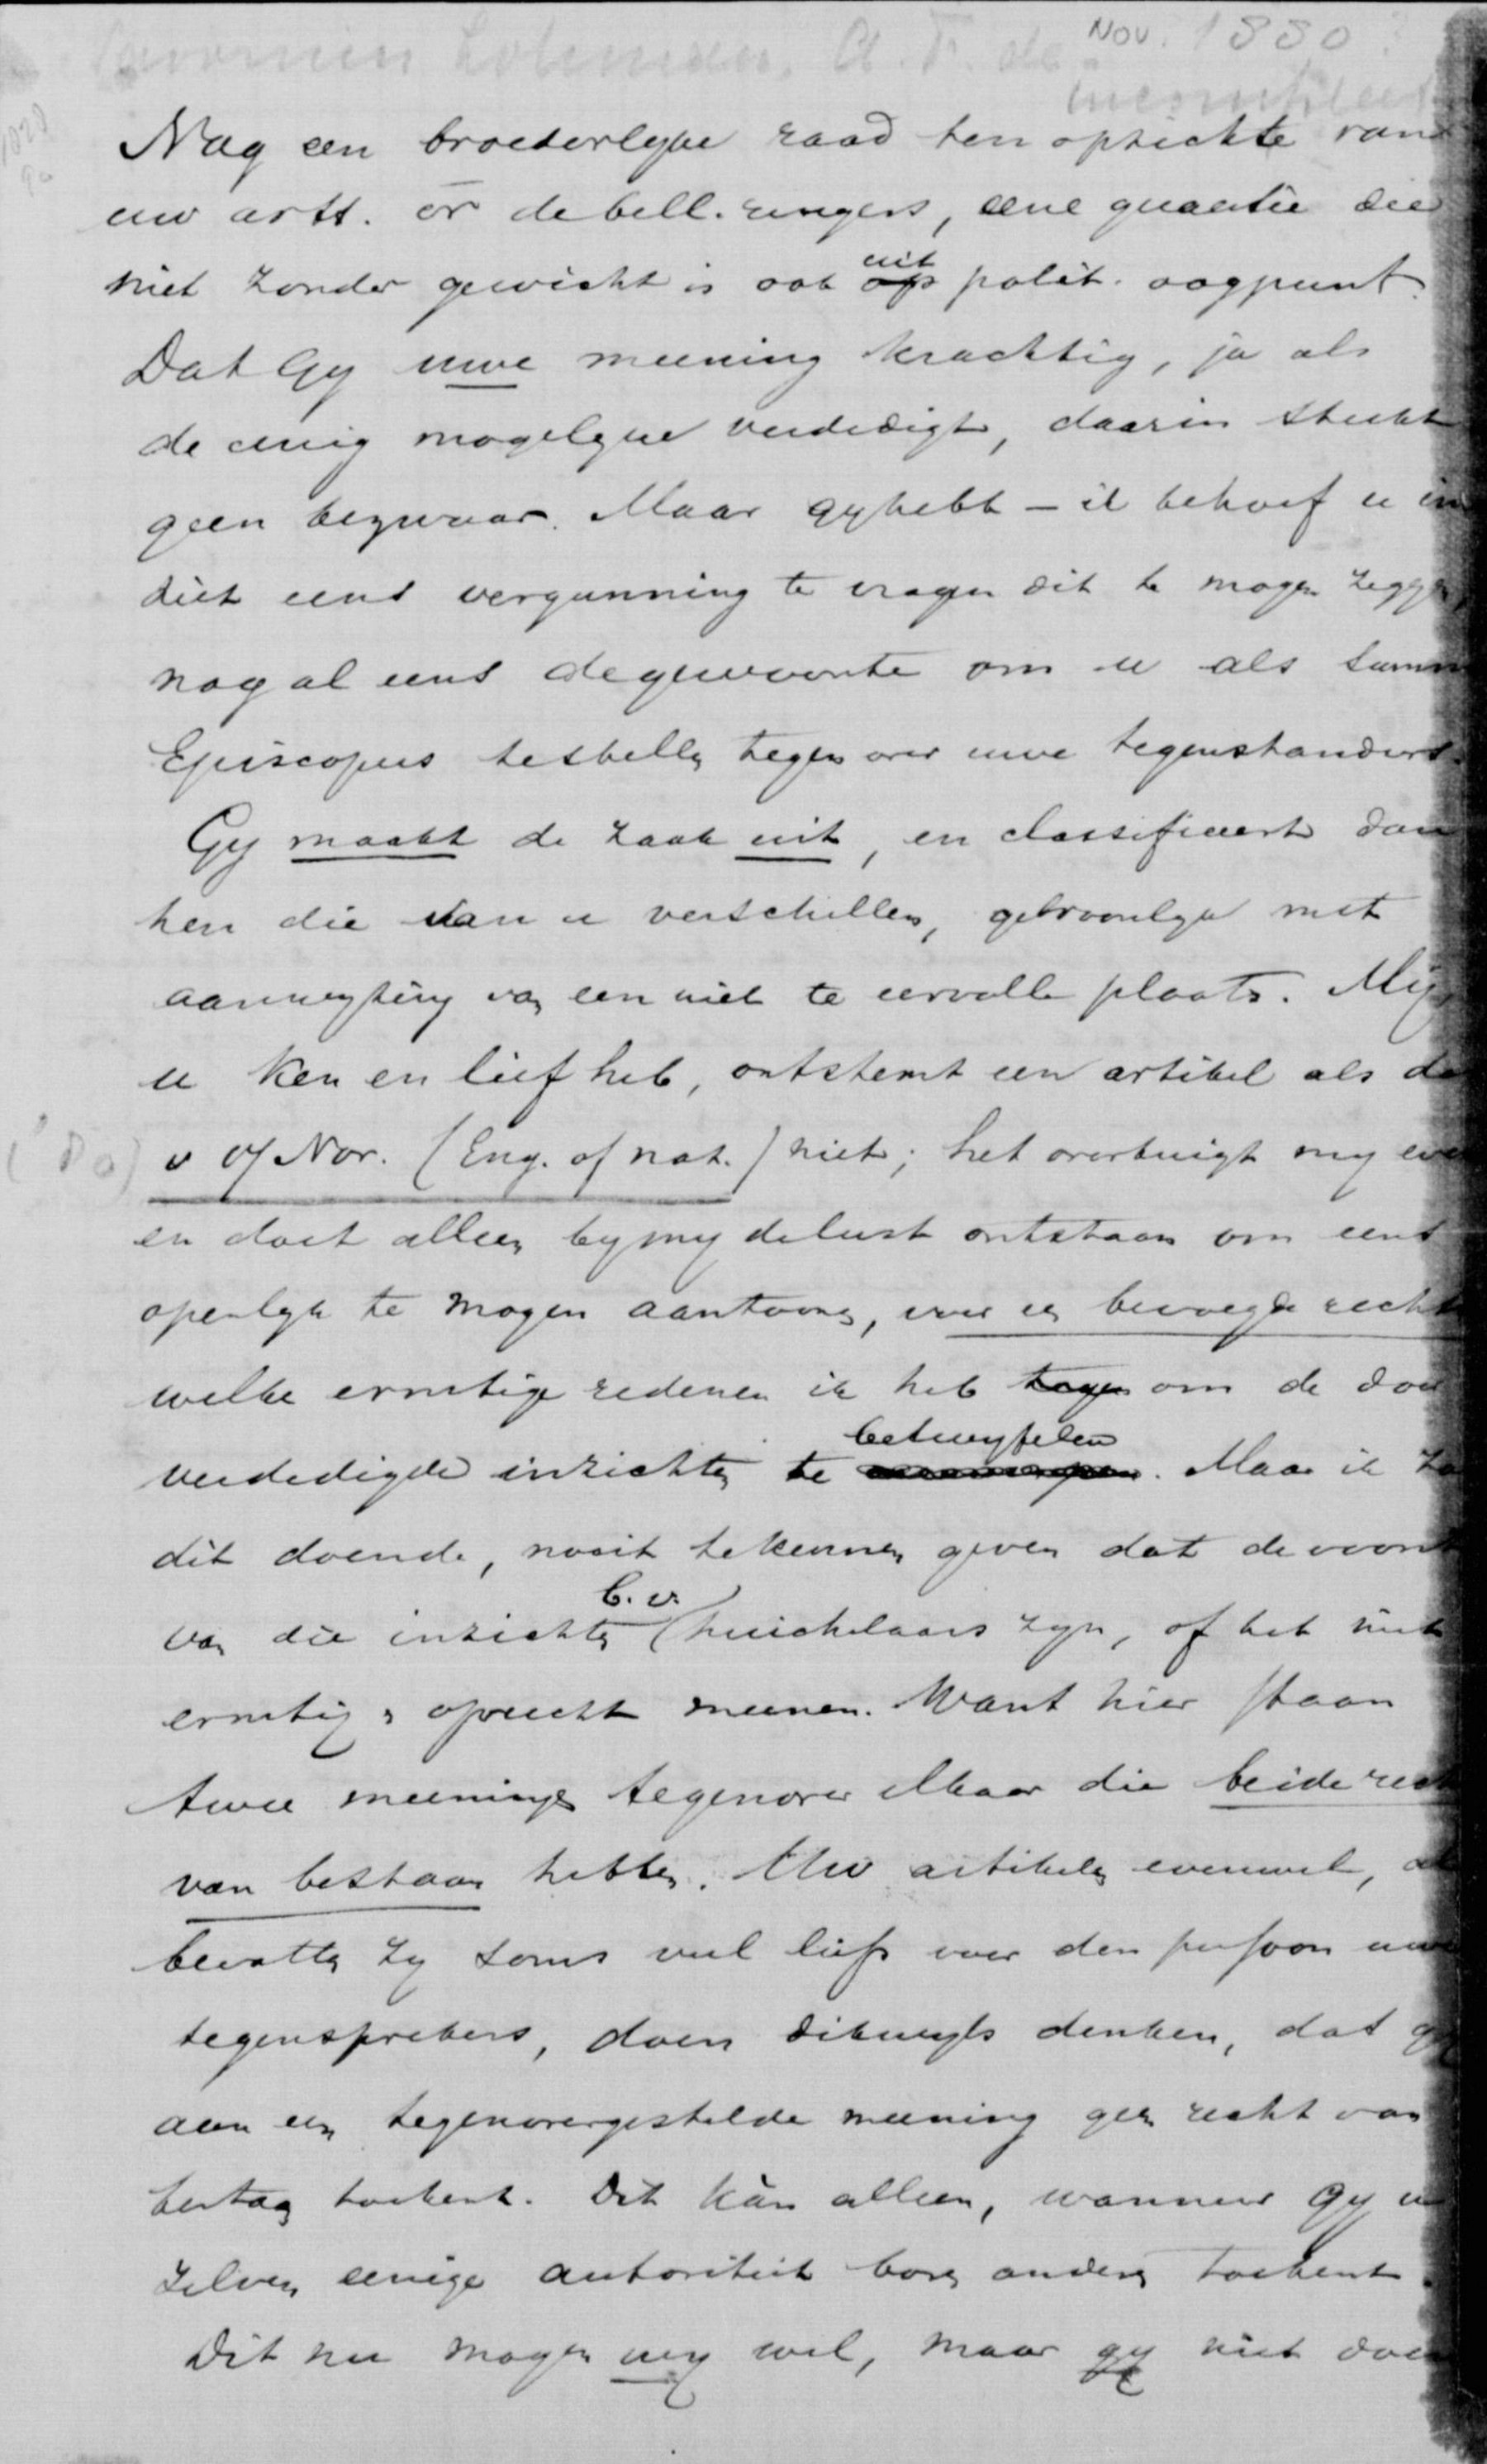 Nov. 1880
Lohman, A. F. de
Nog een broederlyke raad ten opzichte van
uw artt. ov de bell. ringers, eene quaestie die
niet zonder gewicht is ook uit op polit. oogpunt.
Dat Gy uwe meening krachtig, ja als
de eenig mogelyke verdedigt, daarin steekt
geen bezwaar. Maar gy hebt – ik behoef u in
niet eens vergunning te vragen dit te mogen zeggen
nog al eens de gewoonte om u als summ
Episcopus te stellen tegenover uwe tegenstanders.
Gy maakt de zaak uit, en classificeert dan
hen die van u verschillen, gewoonlyk met
aanwyzing van een niet te eervolle plaats. My
u ken en lief heb, ontstemt een artikel als d
v 07 Nov. (Eng. of nat.) niet; het overtuigt my
en doet alleen by my de lust ontstaan om eens
openlyk te mogen aantoonen, voor een bevoegde recht
welke ernstige redenen ik heb tegen om de doo
verdedigde inzichten te betwyfelen. Maar ik za
dit doende, nooit te kennen geven dat de voorst
van die inzichten b.v. huichelaars zyn, of het niet
ernstig & oprecht meenen. Want hier staan
twee meeningen tegenover elkaar die beide rech
van bestaan hebben. Uw artikelen evenwel, al
bevatten zy soms veel liefs voor den persoon uw
tegensprekers, doen dikwyls denken, dat gy
aan een tegenovergestelde meening geen recht van
bestaan toekent. Dit kàn alleen, wanneer Gy u
zelven eenige autoriteit boven anderen toekent.
Dit nu mogen wy wel, maar gy niet doen